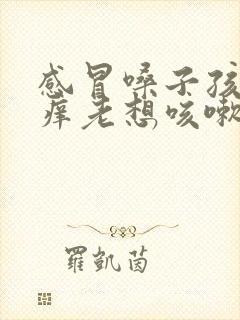 感冒嗓子痒
痒老想咳嗽
羅凱茵